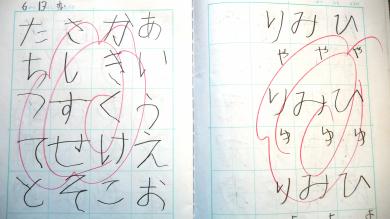 ひゃひゅひ
みゃみゅみ
りゃりゅり
6-13
あいうえお
かきくけこ
さしすせそ
たちつてと